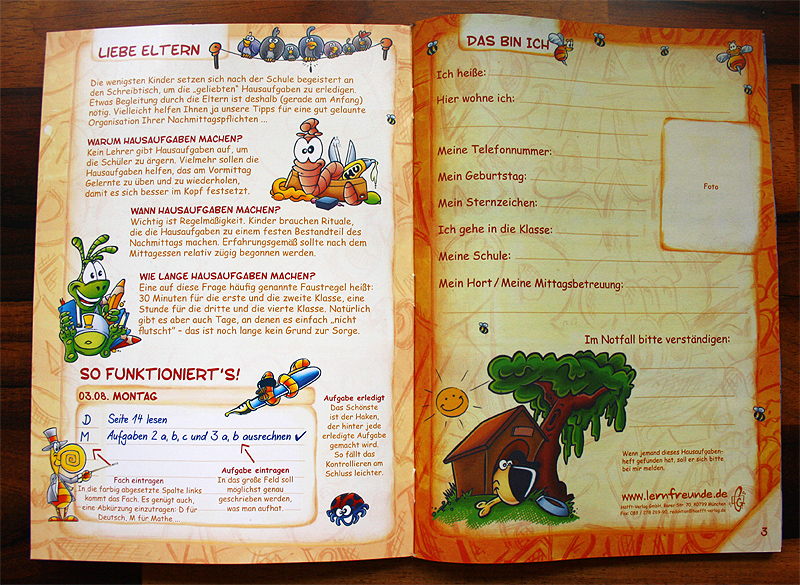 LIEBE ELTERN
Die wenigsten Kinder setzen sich nach der Schule begeistert an
den Schreibtisch, um die „geliebten“ Hausaufgaben zu erledigen.
Etwas Begleitung durch die Eltern ist deshalb (gerade am Anfang)
nötig. Vielleicht helfen Ihnen ja unsere Tipps für eine gut gelaunte
Organisation Ihrer Nachmittagspflichten ...
WARUM HAUSAUFGABEN MACHEN?
Kein Lehrer gibt Hausaufgaben auf, um
die Schüler zu ärgern. Vielmehr sollen die
Hausaufgaben helfen, das am Vormittag
Gelernte zu üben und zu wiederholen,
damit es sich besser im Kopf festsetzt.
WANN HAUSAUFGABEN MACHEN?
Wichtig ist Regelmäßigkeit. Kinder brauchen Rituale,
die die Hausaufgaben zu einem festen Bestandteil des
Nachmittags machen. Erfahrungsgemäß sollte nach dem
Mittagessen relativ zügig begonnen werden.
WIE LANGE HAUSAUFGABEN MACHEN?
Eine auf diese Frage häufig genannte Faustregel heißt:
30 Minuten für die erste und die zweite Klasse, eine
Stunde für die dritte und die vierte Klasse. Natürlich
gibt es aber auch Tage, an denen es einfach „nicht
flutscht“ – das ist noch lange kein Grund zur Sorge.
SO FUNKTIONIERT'S!
03.08. MONTAG
D Seite 14 lesen
M Aufgaben 2 a, b, c und 3 a, b ausrechnen ✓
Fach eintragen
In die farbig abgesetzte Spalte links
kommt das Fach. Es genügt auch,
eine Abkürzung einzutragen: D für
Deutsch, M für Mathe ...
Aufgabe eintragen
In das große Feld soll
möglichst genau
geschrieben werden,
was man aufhat.
Aufgabe erledigt
Das Schönste
ist der Haken,
der hinter jede
erledigte Aufgabe
gemacht wird.
So fällt das
Kontrollieren am
Schluss leichter.
DAS BIN ICH
Ich heiße:
Hier wohne ich:
Meine Telefonnummer:
Mein Geburtstag:
Mein Sternzeichen:
Ich gehe in die Klasse:
Meine Schule:
Mein Hort / Meine Mittagsbetreuung:
Foto
Im Notfall bitte verständigen:
Wenn jemand dieses Hausaufgaben-
heft gefunden hat, soll er sich bitte
bei mir melden.
www.lernfreunde.de
Häfft-Verlag GmbH, Barer Str. 70, 80799 München
3